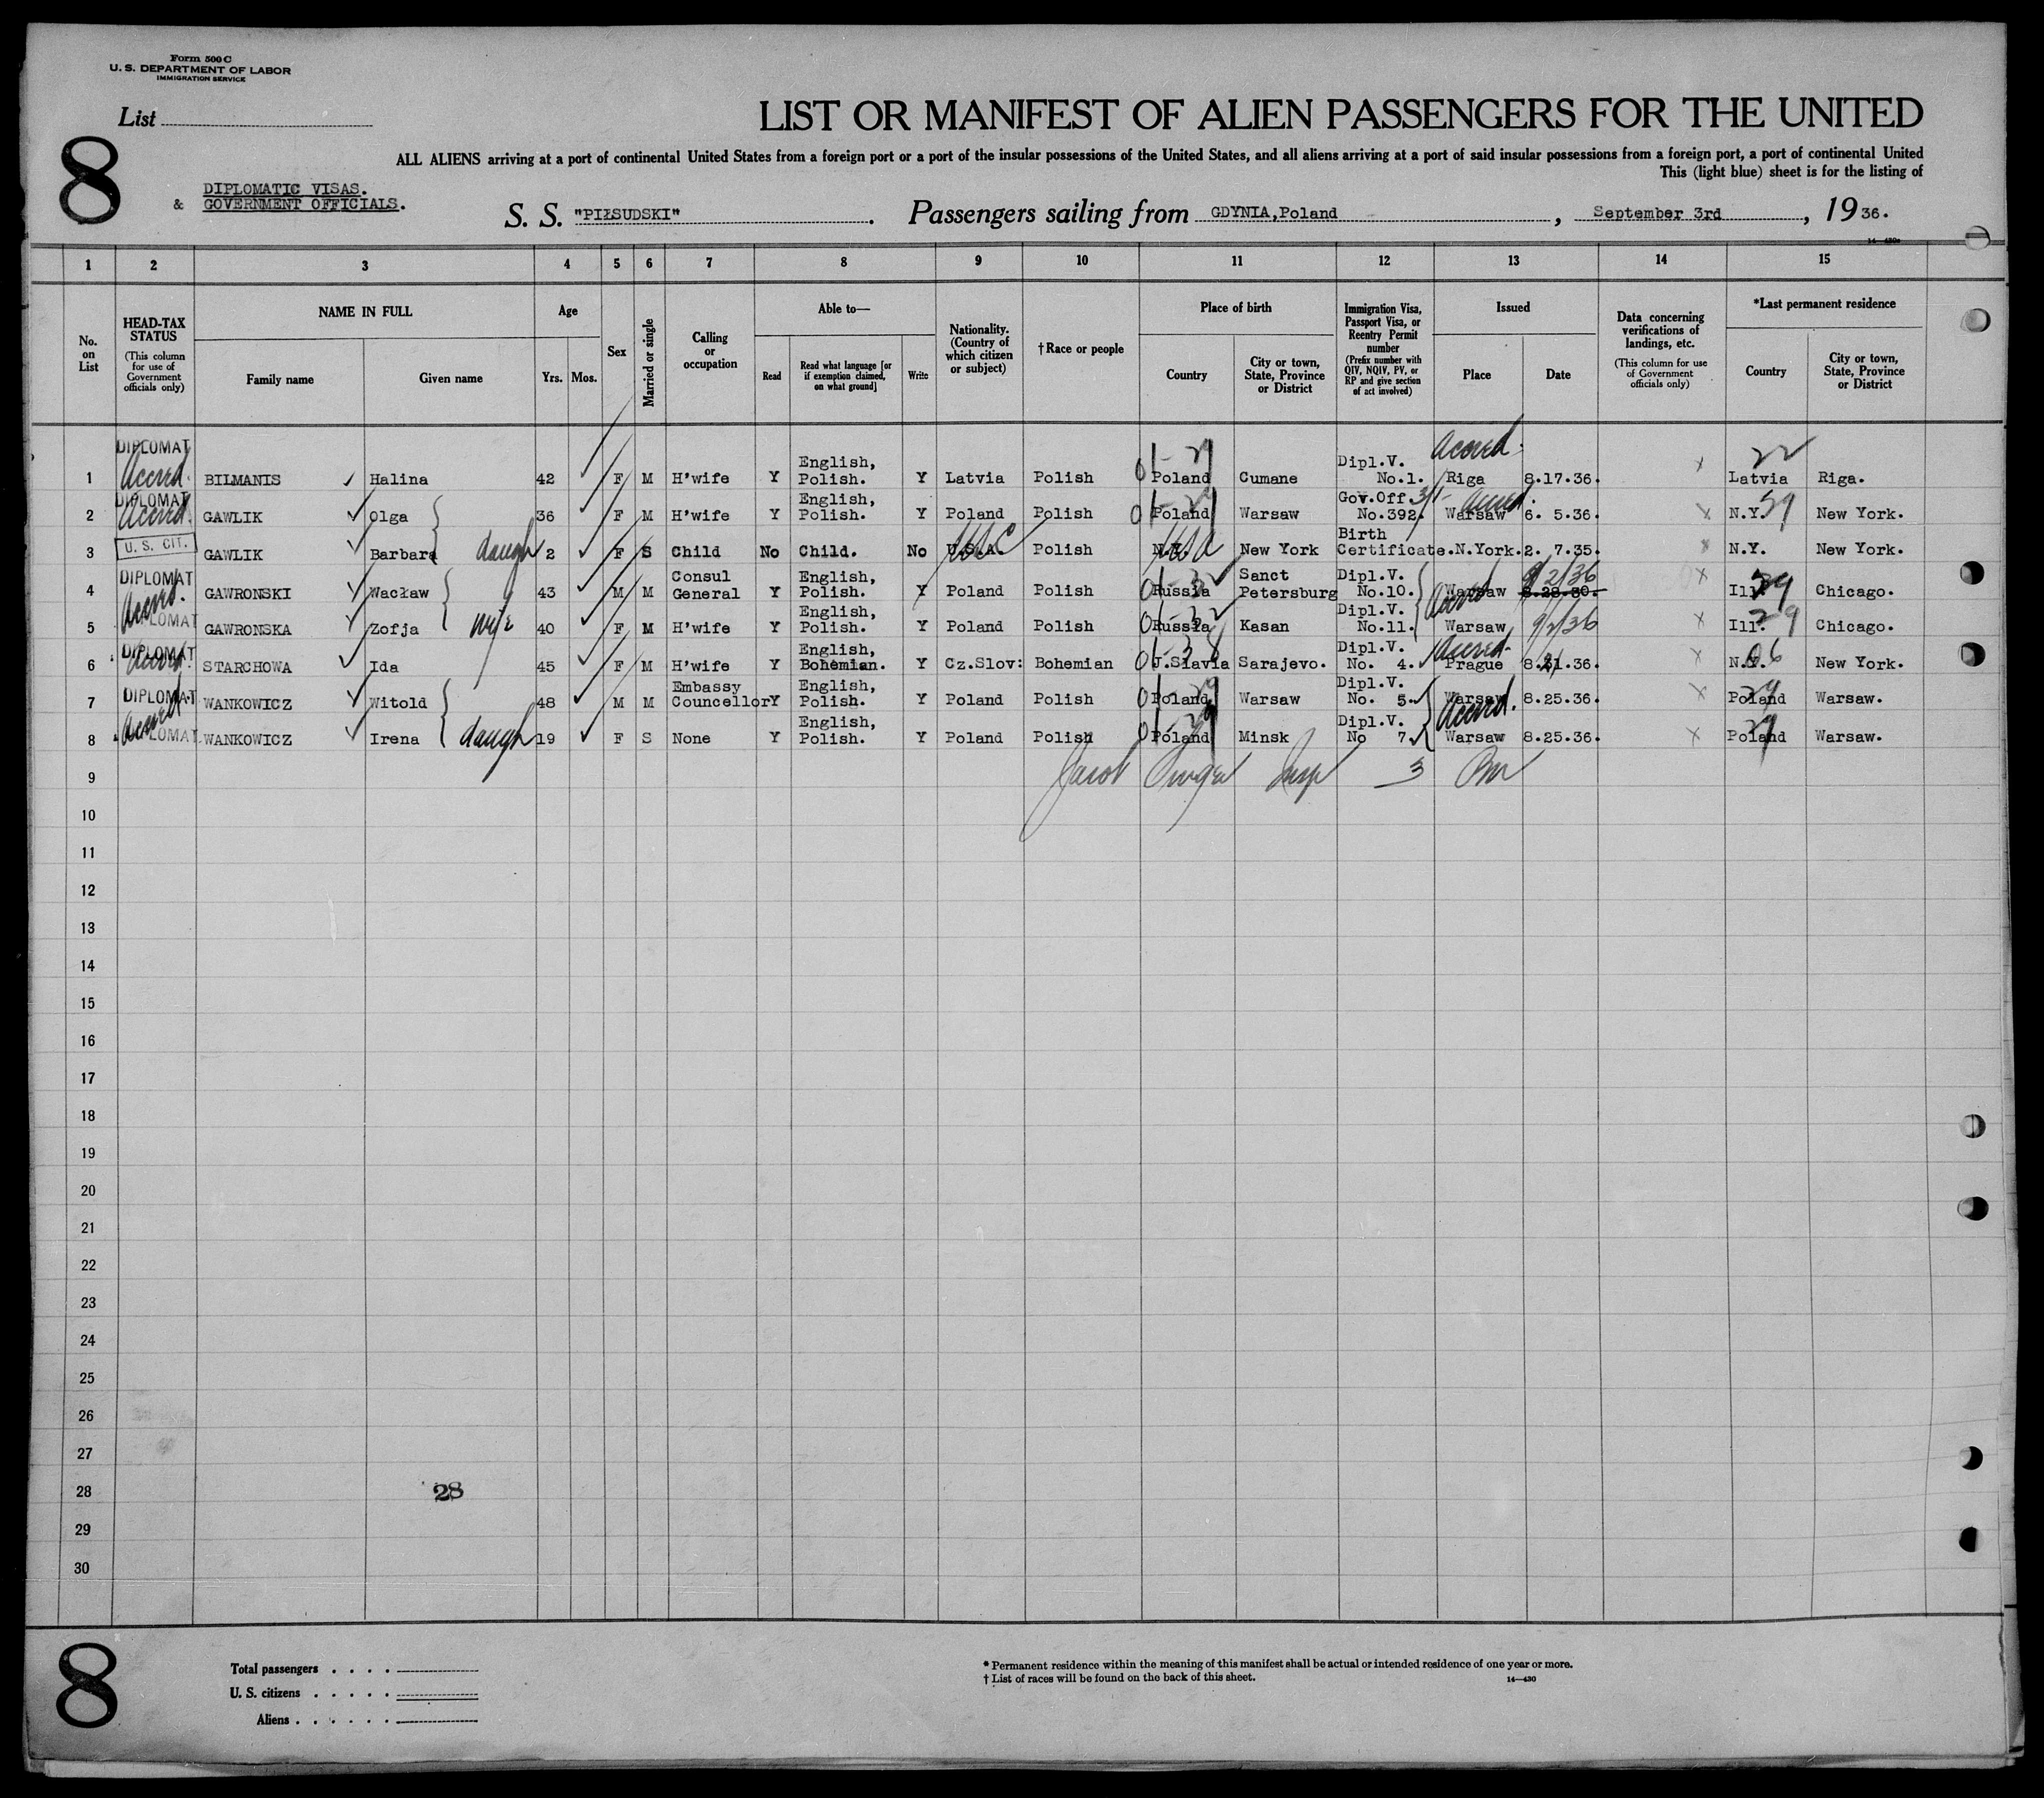 Form 500 C
U. S. DEPARTMENT OF LABOR
IMMIGRATION SERVICE
List
LIST OR MANIFEST OF ALIEN PASSENGERS FOR THE UNITED
8
ALL ALIENS arriving at a port of continental United States from a foreign port or a port of the insular possessions of the United States, and all aliens arriving at a port of said insular possessions from a foreign port, a port of continental United
This (light blue) sheet is for the listing of
DIPLOMATIC VISAS.
& GOVERNMENT OFFICIALS.
S. S. "PIŁSUDSKI". Passengers sailing from GDYNIA,Poland, September 3rd, 1936.
1 2 3 4 5 6 7 8 9 10 11 12 13 14 15
No. on List
HEAD-TAX STATUS (This column for use of Government officials only)
NAME IN FULL
Family name
Given name
Age
Yrs. Mos.
Sex
Married or single
Calling or occupation
Able to—
Read
Read what language [or if exemption claimed, on what ground]
Write
Nationality. (Country of which citizen or subject)
†Race or people
Place of birth
Country
City or town, State, Province or District
Immigration Visa, Passport Visa, or Reentry Permit number (Prefix number with QIV, NQIV, PV, or RP and give section of act involved)
Issued
Place
Date
Data concerning verifications of landings, etc. (This column for use of Government officials only)
*Last permanent residence
Country
City or town, State, Province or District
1 DIPLOMAT Accred. BILMANIS Halina 42 F M H'wife Y English, Polish. Y Latvia Polish 01-29 Poland Cumane Dipl.V. No.1. Accred. Riga 8.17.36. 22 Latvia Riga.
2 DIPLOMAT Accred. GAWLIK Olga 36 F M H'wife Y English, Polish. Y Poland Polish 01-29 Poland Warsaw Gov.Off. 3/1- No.392. Accred. Warsaw 6. 5.36. N.Y. 39 New York.
3 U. S. CIT. GAWLIK Barbara daugh 2 F S Child No Child. No U.S.A. USC Polish N.Y. USA New York Birth Certificate. N.York. 2. 7.35. N.Y. New York.
4 DIPLOMAT Accred. GAWRONSKI Wacław 43 M M Consul General Y English, Polish. Y Poland Polish 01-32 Russia Sanct Petersburg Dipl.V. No.10. Accred Warsaw 9/2/36 Ill. 39 Chicago.
5 DIPLOMAT GAWRONSKA Zofja wife 40 F M H'wife Y English, Polish. Y Poland Polish 01-32 Russia Kasan Dipl.V. No.11. Warsaw 9/2/36 Ill. 29 Chicago.
6 DIPLOMAT Accred. STARCHOWA Ida 45 F M H'wife Y English, Bohemian. Y Cz.Slov: Bohemian 01-38 J.Slavia Sarajevo. Dipl.V. No. 4. Accred. Prague 8.21.36. N.Y. 06 New York.
7 DIPLOMAT Accred WANKOWICZ Witold 48 M M Embassy Councellor Y English, Polish. Y Poland Polish 01-29 Poland Warsaw Dipl.V. No. 5. Warsaw 8.25.36. Poland 29 Warsaw.
8 DIPLOMAT WANKOWICZ Irena daugh 19 F S None Y English, Polish. Y Poland Polish 01-29 Poland Minsk Dipl.V. No 7. Accred. Warsaw 8.25.36. Poland 29 Warsaw.
9 Jacob Insp 3
10
11
12
13
14
15
16
17
18
19
20
21
22
23
24
25
26
27
28 28
29
30
8
Total passengers . . . .
U. S. citizens . . . . .
Aliens . . . . . .
* Permanent residence within the meaning of this manifest shall be actual or intended residence of one year or more.
† List of races will be found on the back of this sheet.
14—430